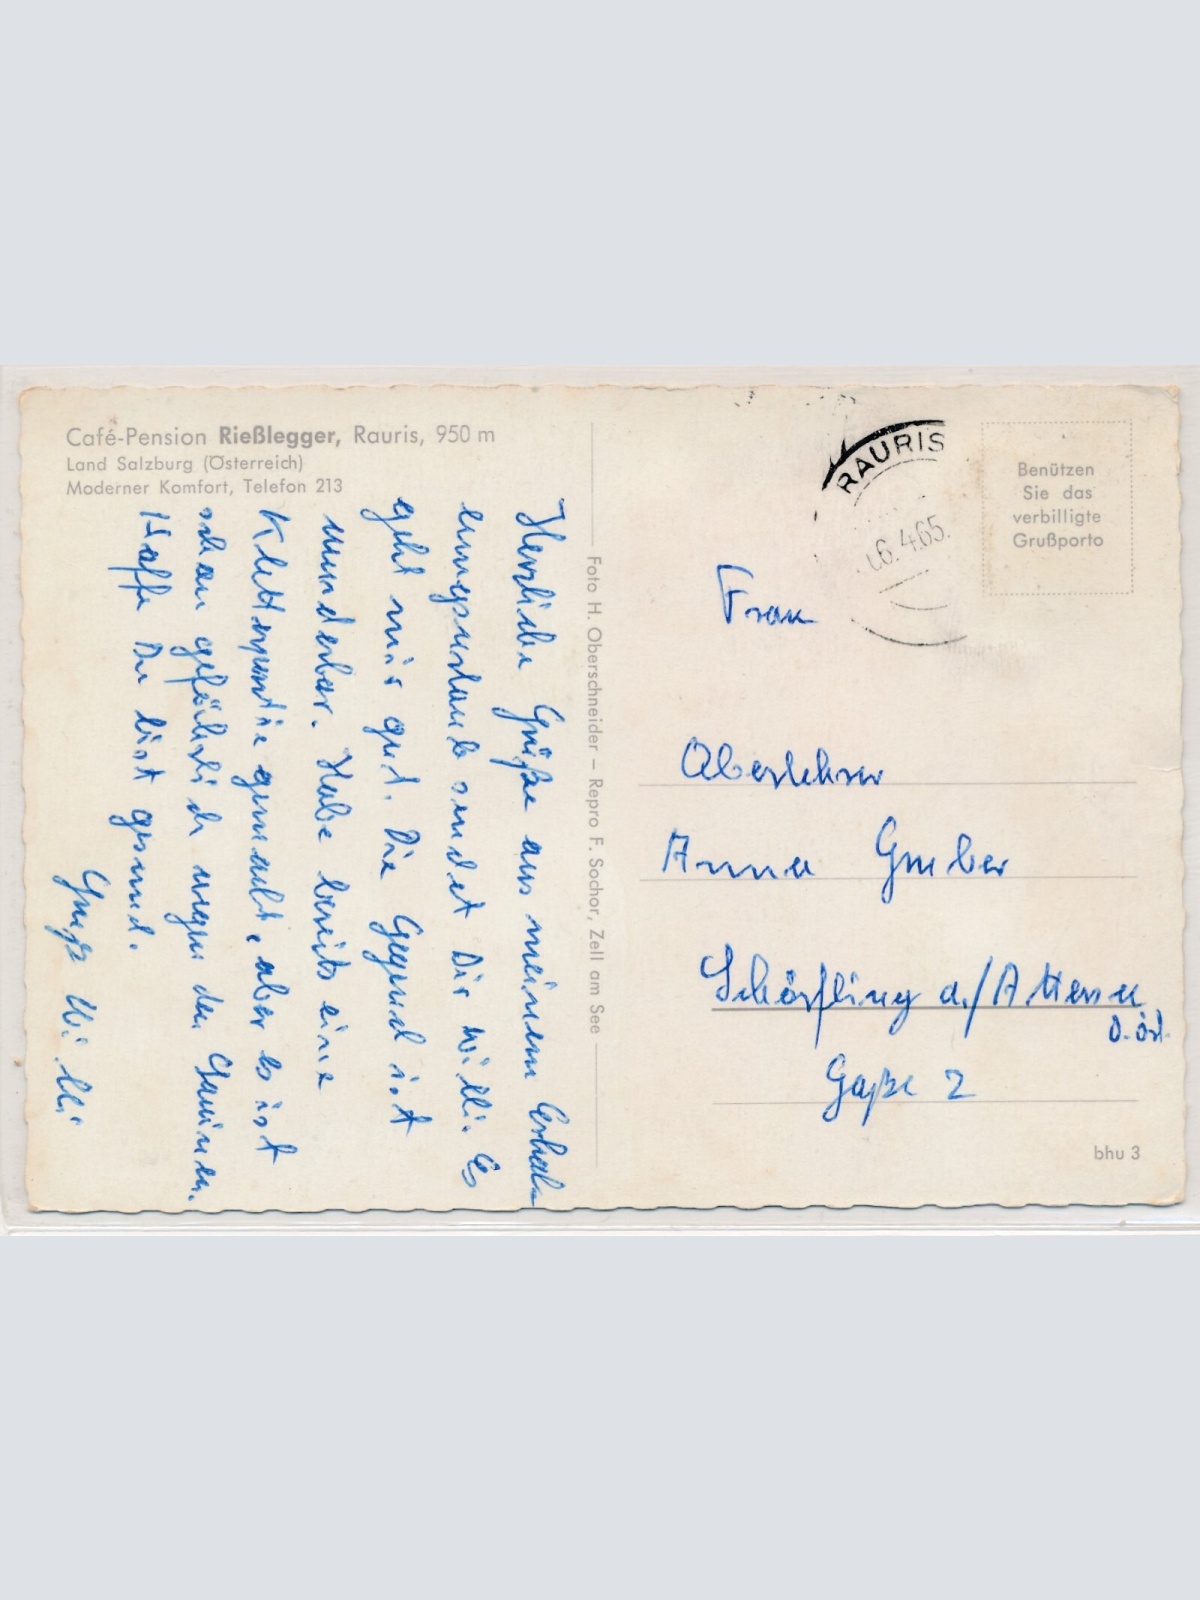 Café-Pension Rießlegger, Rauris, 950 m
Land Salzburg (Österreich)
Moderner Komfort, Telefon 213
Herzliche Grüße aus meinem Erhol-
ungsurlaub sendet Dir Willi. Es
geht mir gut. Die Gegend ist
wunderbar. Habe bereits eine
Kletterpartie gemacht, aber es ist
schon gefährlich wegen den
Hoffe Du bist gesund.
Gruß Willi
Foto H. Oberschneider – Repro F. Sochor, Zell am See
RAURIS
6.4.65.
Benützen
Sie das
verbilligte
Grußporto
Frau
Oberlehrer
Anna Gruber
Schörfling a./Attersee
O.Öst.
Gaße 2
bhu 3